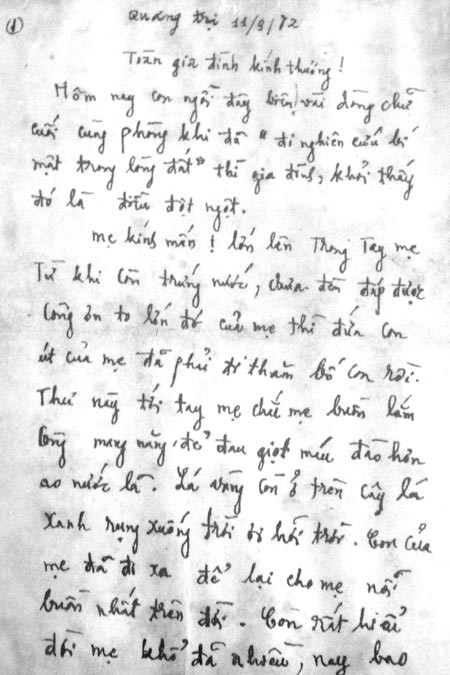 ① Quảng trị 11/9/72
Toàn gia đình kính thương!
Hôm nay con ngồi đây biên vài dòng chữ
cuối cùng phòng khi đã "đi nghiên cứu bí
mật trong lòng đất" thì gia đình, khỏi thấy
đó là điều đột ngột.
Mẹ kính mến! lớn lên Trong Tay mẹ
Từ khi còn trứng nước, chưa đền đáp được
Công ơn to lớn đó của mẹ thì đứa con
út của mẹ đã phải đi thăm bố con rồi.
Thư này tới tay mẹ chắc mẹ buồn lắm
Công mang nặng đẻ đau giọt máu đào hơn
ao nước lã. Lá vàng còn ở trên cây lá
xanh rụng xuống trời ơi hỡi trời. Con của
mẹ đã đi xa để lại cho mẹ nỗi
buồn nhất trên đời. Con rất hiểu
đời mẹ khổ đã nhiều, nay bao